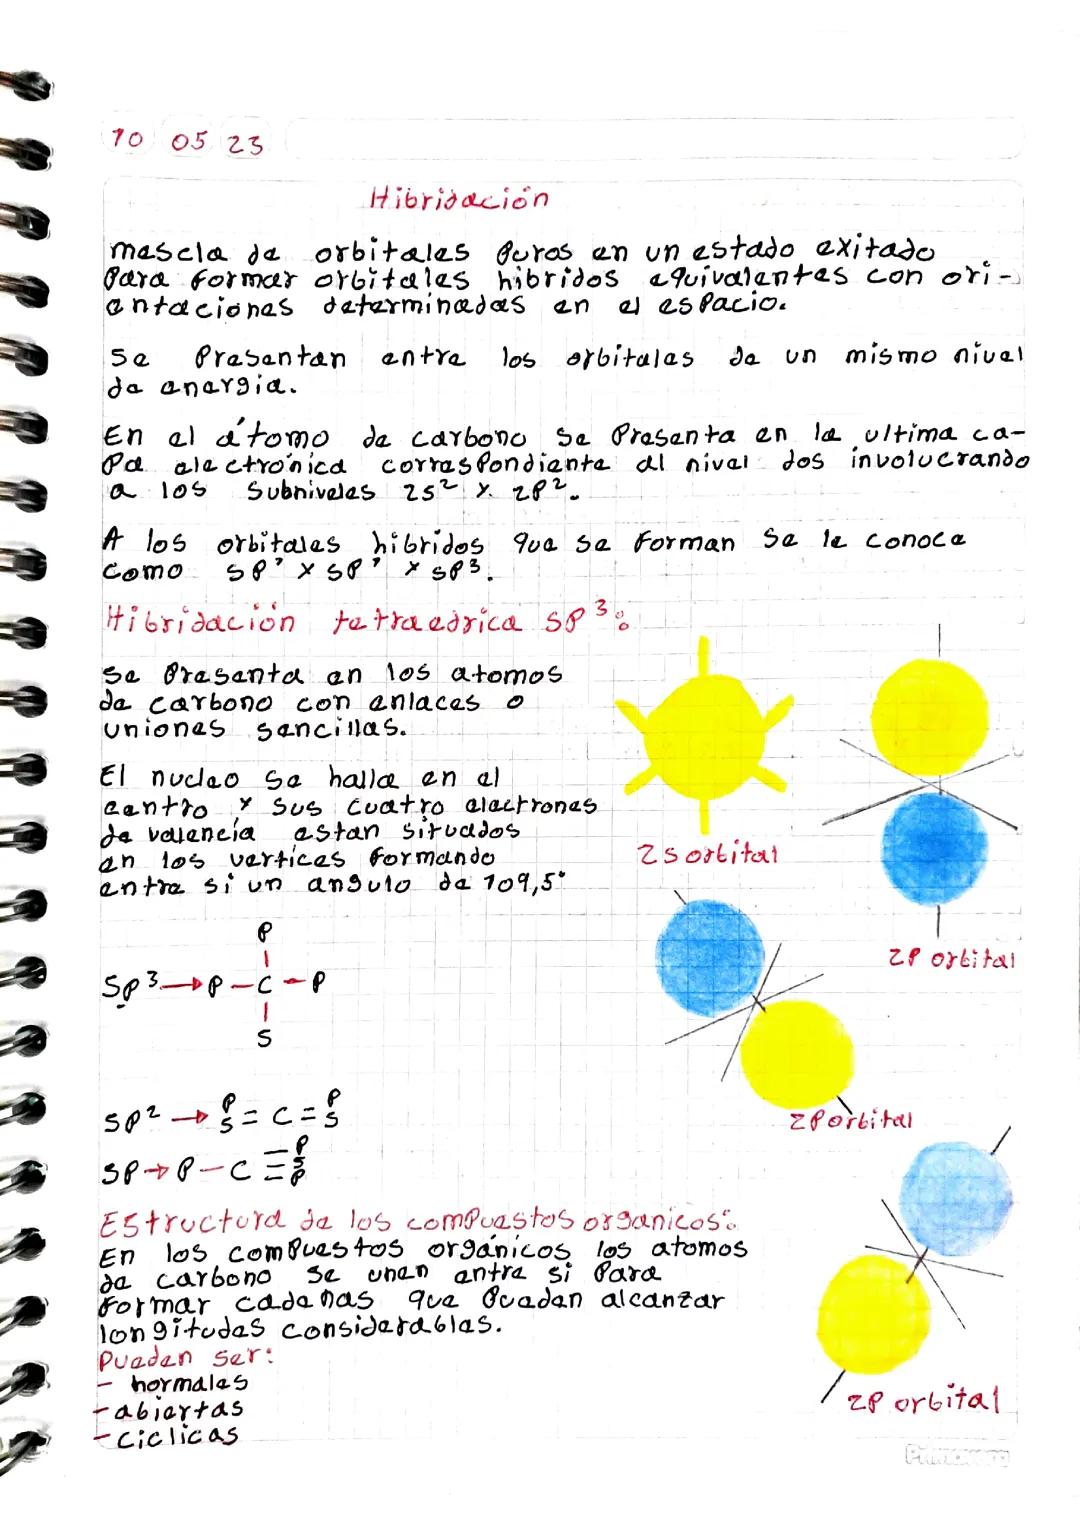 10 05 23
Hibridación
mescla de orbitales puros en un estado exitado
para formar orbitales hibridos equivalentes con ori-
entaciones determinadas en el espacio.
Se presentan entre los orbitales de un mismo nivel
de energia.
En el átomo de carbono se presenta en la ultima ca-
pa electrónica correspondiente al nivel dos involucrando
a los subniveles 2s² y 2p².
A los orbitales hibridos que se forman se le conoce
como sp' y sp' y sp³.
Hibridación tetraedrica sp³:
se presenta en los atomos
de carbono con enlaces o
uniones sencillas.
El nucleo se halla en el
centro y sus cuatro electrones
de valencia estan situados
en los vertices formando
entre si un angulo de 109,5°
2s orbital
2p orbital
P
Sp³→P-C-P
S
2p orbital
sp²→ P S = C = P S
sp→P-C≡P S P
Estructura de los compuestos organicos:
En los compuestos orgánicos los atomos
de carbono se unen entre si para
formar cadenas que puedan alcanzar
longitudes considerables.
Pueden ser:
- normales
- abiertas
- ciclicas
2p orbital
Primavera